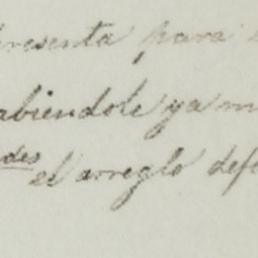 presenta para
abiendole ya m
des el arreglo def